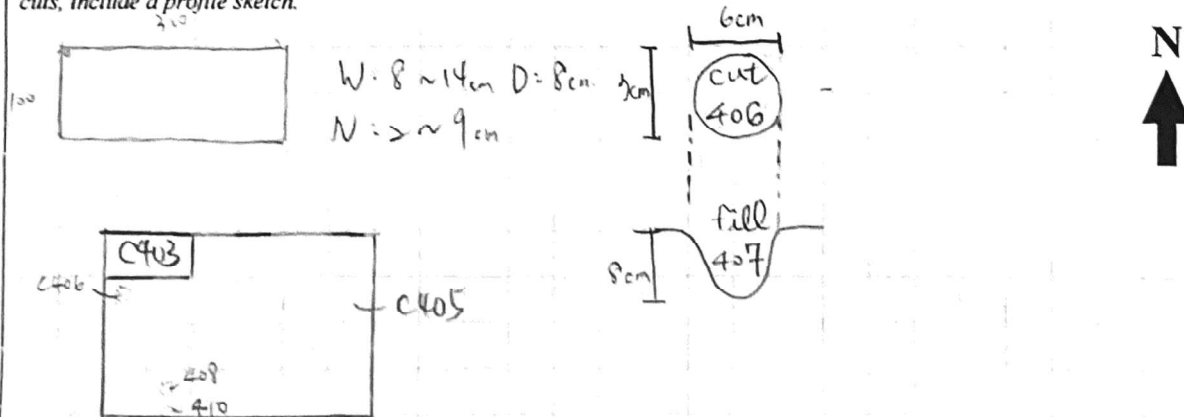 cuts, include a profile sketch.
100
W: 8 ~ 14cm D: 8cm
N: > ~ 9cm
6cm
cut
406
N
fill
407
8cm
C403
C406
C405
408
410